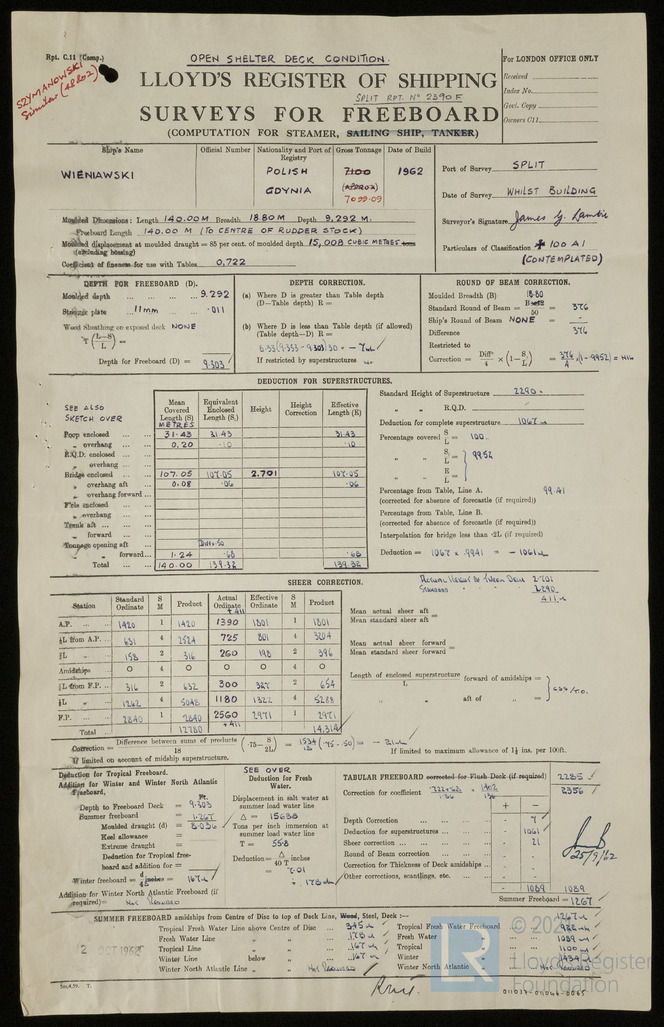 Rpt. C.11 (Comp.)
SZYMANOWSKI
Similar (48202)
OPEN SHELTER DECK CONDITION.
LLOYD'S REGISTER OF SHIPPING
SPLIT RPT. Nº 2390F
SURVEYS FOR FREEBOARD
(COMPUTATION FOR STEAMER, SAILING SHIP, TANKER)
For LONDON OFFICE ONLY
Received
Index No.
Govt. Copy
Owners C11
Ship's Name
Official Number
Nationality and Port of Registry
Gross Tonnage
Date of Build
WIENIAWSKI
POLISH
GDYNIA
7100
(APPROX)
7099.09
1962
Port of Survey SPLIT
Date of Survey WHILST BUILDING
Surveyor's Signature James G. Lambie
Particulars of Classification ✠ 100 A1
(CONTEMPLATED)
Moulded Dimensions: Length 140.00M Breadth 18.80M Depth 9.292 M.
Freeboard Length 140.00 M (TO CENTRE OF RUDDER STOCK)
Moulded displacement at moulded draught = 85 per cent. of moulded depth 15,008 CUBIC METRES tons
(excluding bossing)
Coefficient of fineness for use with Tables 0.722
DEPTH FOR FREEBOARD (D).
Moulded depth ... 9.292
Stringer plate 11mm .011
Wood Sheathing on exposed deck NONE
T (L-S/L) =
Depth for Freeboard (D) = 9.303
DEPTH CORRECTION.
(a) Where D is greater than Table depth
(D—Table depth) R =
(b) Where D is less than Table depth (if allowed)
(Table depth—D) R =
8.33(9.333 - 9.303)30 = - 7
If restricted by superstructures
ROUND OF BEAM CORRECTION.
Moulded Breadth (B) 18.80
Standard Round of Beam = /50 = 376
Ship's Round of Beam NONE = -
Difference 376
Restricted to
Correction = Diff/4 × (1-S/L) = 376/4 × (1-.9952) = Nil
DEDUCTION FOR SUPERSTRUCTURES.
SEE ALSO
SKETCH OVER
Mean Covered Length (S)
Equivalent Enclosed Length (S₁)
Height
Height Correction
Effective Length (E)
METRES
Poop enclosed 31.43 31.43 31.43
„ overhang 0.20 .10 .10
R.Q.D. enclosed
„ overhang
Bridge enclosed 107.05 107.05 2.701 107.05
„ overhang aft 0.08 .06 .06
„ overhang forward
F'cle enclosed
„ overhang
Trunk aft
„ forward
Tonnage opening aft
„ forward 1.24 .68 .68
Total 140.00 139.32 139.32
Standard Height of Superstructure 2290
„ „ R.Q.D.
Deduction for complete superstructure 1067
Percentage covered S/L = 100
„ „ S₁/L = } 99.52
„ „ E/L =
Percentage from Table, Line A. 99.41
(corrected for absence of forecastle (if required))
Percentage from Table, Line B.
(corrected for absence of forecastle (if required))
Interpolation for bridge less than ·2L (if required)
Deduction = 1067 x .9941 = - 1061
SHEER CORRECTION.
Actual Height to Tween Deck 2.701
Standard 2.290
411
Station
Standard Ordinate
S M
Product
Actual Ordinate
Effective Ordinate
S M
Product
+411
A.P. 1420 1 1420 1390 1801 1 1801
⅙L from A.P. 631 4 2524 725 801 4 3204
⅓L „ 158 2 316 260 198 2 396
Amidships 0 4 0 0 0 4 0
⅓L from F.P. 316 2 632 300 327 2 654
⅙L „ 1262 4 5048 1180 1322 4 5288
F.P. 2840 1 2840 2560 2971 1 2971
+411
Total 12780 14,314
Mean actual sheer aft
Mean standard sheer aft =
Mean actual sheer forward
Mean standard sheer forward =
Length of enclosed superstructure forward of amidships =
L
„ „ aft of „ =
Correction = Difference between sums of products/18 (·75-S/2L) = 1534/18 (.75-.50) = - 21
If limited on account of midship superstructure.
If limited to maximum allowance of 1½ ins. per 100ft.
Deduction for Tropical Freeboard.
Addition for Winter and Winter North Atlantic Freeboard,
Depth to Freeboard Deck = 9.303
Summer freeboard = 1.267
Moulded draught (d) = 8.036
Keel allowance =
Extreme draught =
Deduction for Tropical freeboard and addition for =
Winter freeboard = d/48 inches = 167
Addition for Winter North Atlantic Freeboard (if required) = Not Required
SEE OVER
Deduction for Fresh Water.
Displacement in salt water at summer load water line
Δ = 15638
Tons per inch immersion at summer load water line
T = 558
Deduction = Δ/40 T inches
= 7.01
= 178
TABULAR FREEBOARD corrected for Flush Deck (if required) 2285
Correction for coefficient .722+.68/1.36 = 1.402/1.36 2356
+ -
Depth Correction - 7
Deduction for superstructures - 1061
Sheer correction - 21
Round of Beam correction -
Correction for Thickness of Deck amidships -
Other corrections, scantlings, etc. -
- 1089 1089
Summer Freeboard = 1267
25/9/62
SUMMER FREEBOARD amidships from Centre of Disc to top of Deck Line, Wood, Steel, Deck :— 1267
Tropical Fresh Water Line above Centre of Disc 345
Fresh Water Line „ „ 178
Tropical Line „ „ 167
Winter Line below „ 167
Winter North Atlantic Line „ „ Not Required
Tropical Fresh Water Freeboard 922
Fresh Water „ 1089
Tropical „ 1100
Winter „ 1434
Winter North Atlantic „ Not Required
2 OCT 1962
5m,4.59. T.
011037-011046-0065
LR
Lloyd's Register
Foundation